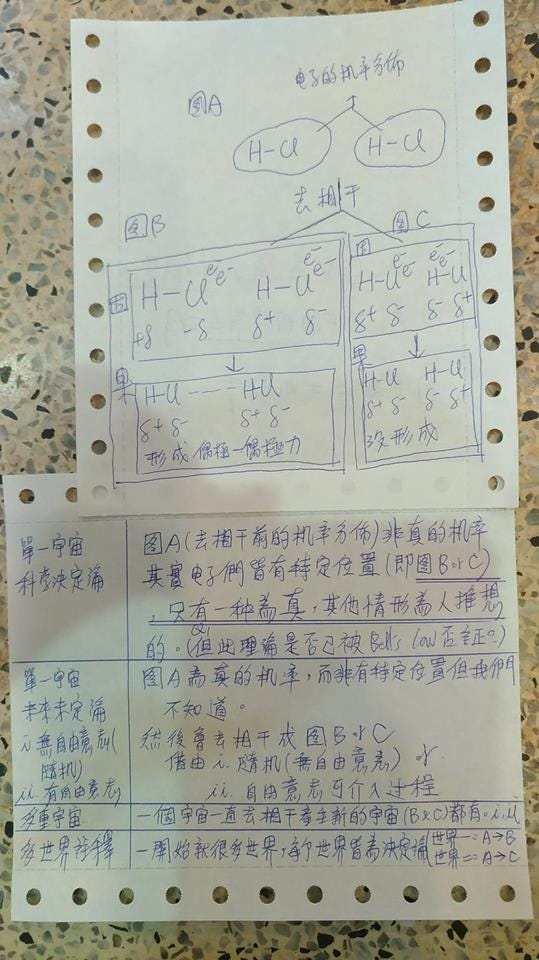 电子的机率分佈
图A
H-Cl H-Cl
去相干
图B 图C
因 H-Cl e⁻e⁻ H-Cl e⁻e⁻
+δ -δ δ+ δ-
因 H-Cl e⁻e⁻ e⁻e⁻ H-Cl
δ+ δ- δ- δ+
果 H-Cl ---- HCl
δ+ δ- δ+ δ-
形成 偶極-偶極力
果 H-Cl H-Cl
δ+ δ- δ- δ+
沒形成
單一宇宙
科学決定論
图A(去相干前的机率分佈)非真的机率
其實电子們皆有特定位置(即图B or C)
,只有一种為真,其他情形為人推想
的。(Q1但此理論是否已被Bell's law否証?)
單一宇宙
未來未定論
i.無自由意志(
隨机)
ii.有自由意志
图A為真的机率,而非有特定位置但我們
不知道。
然後會去相干成图B or C
借由 i.隨机(無自由意志) or
ii.自由意志可介入过程
多重宇宙
一個宇宙一直去相干產生新的宇宙(B&C)都有。i.ii
多世界詮釋
一開始就很多世界,每个世界皆為決定論
世界一:A→B
世界二:A→C